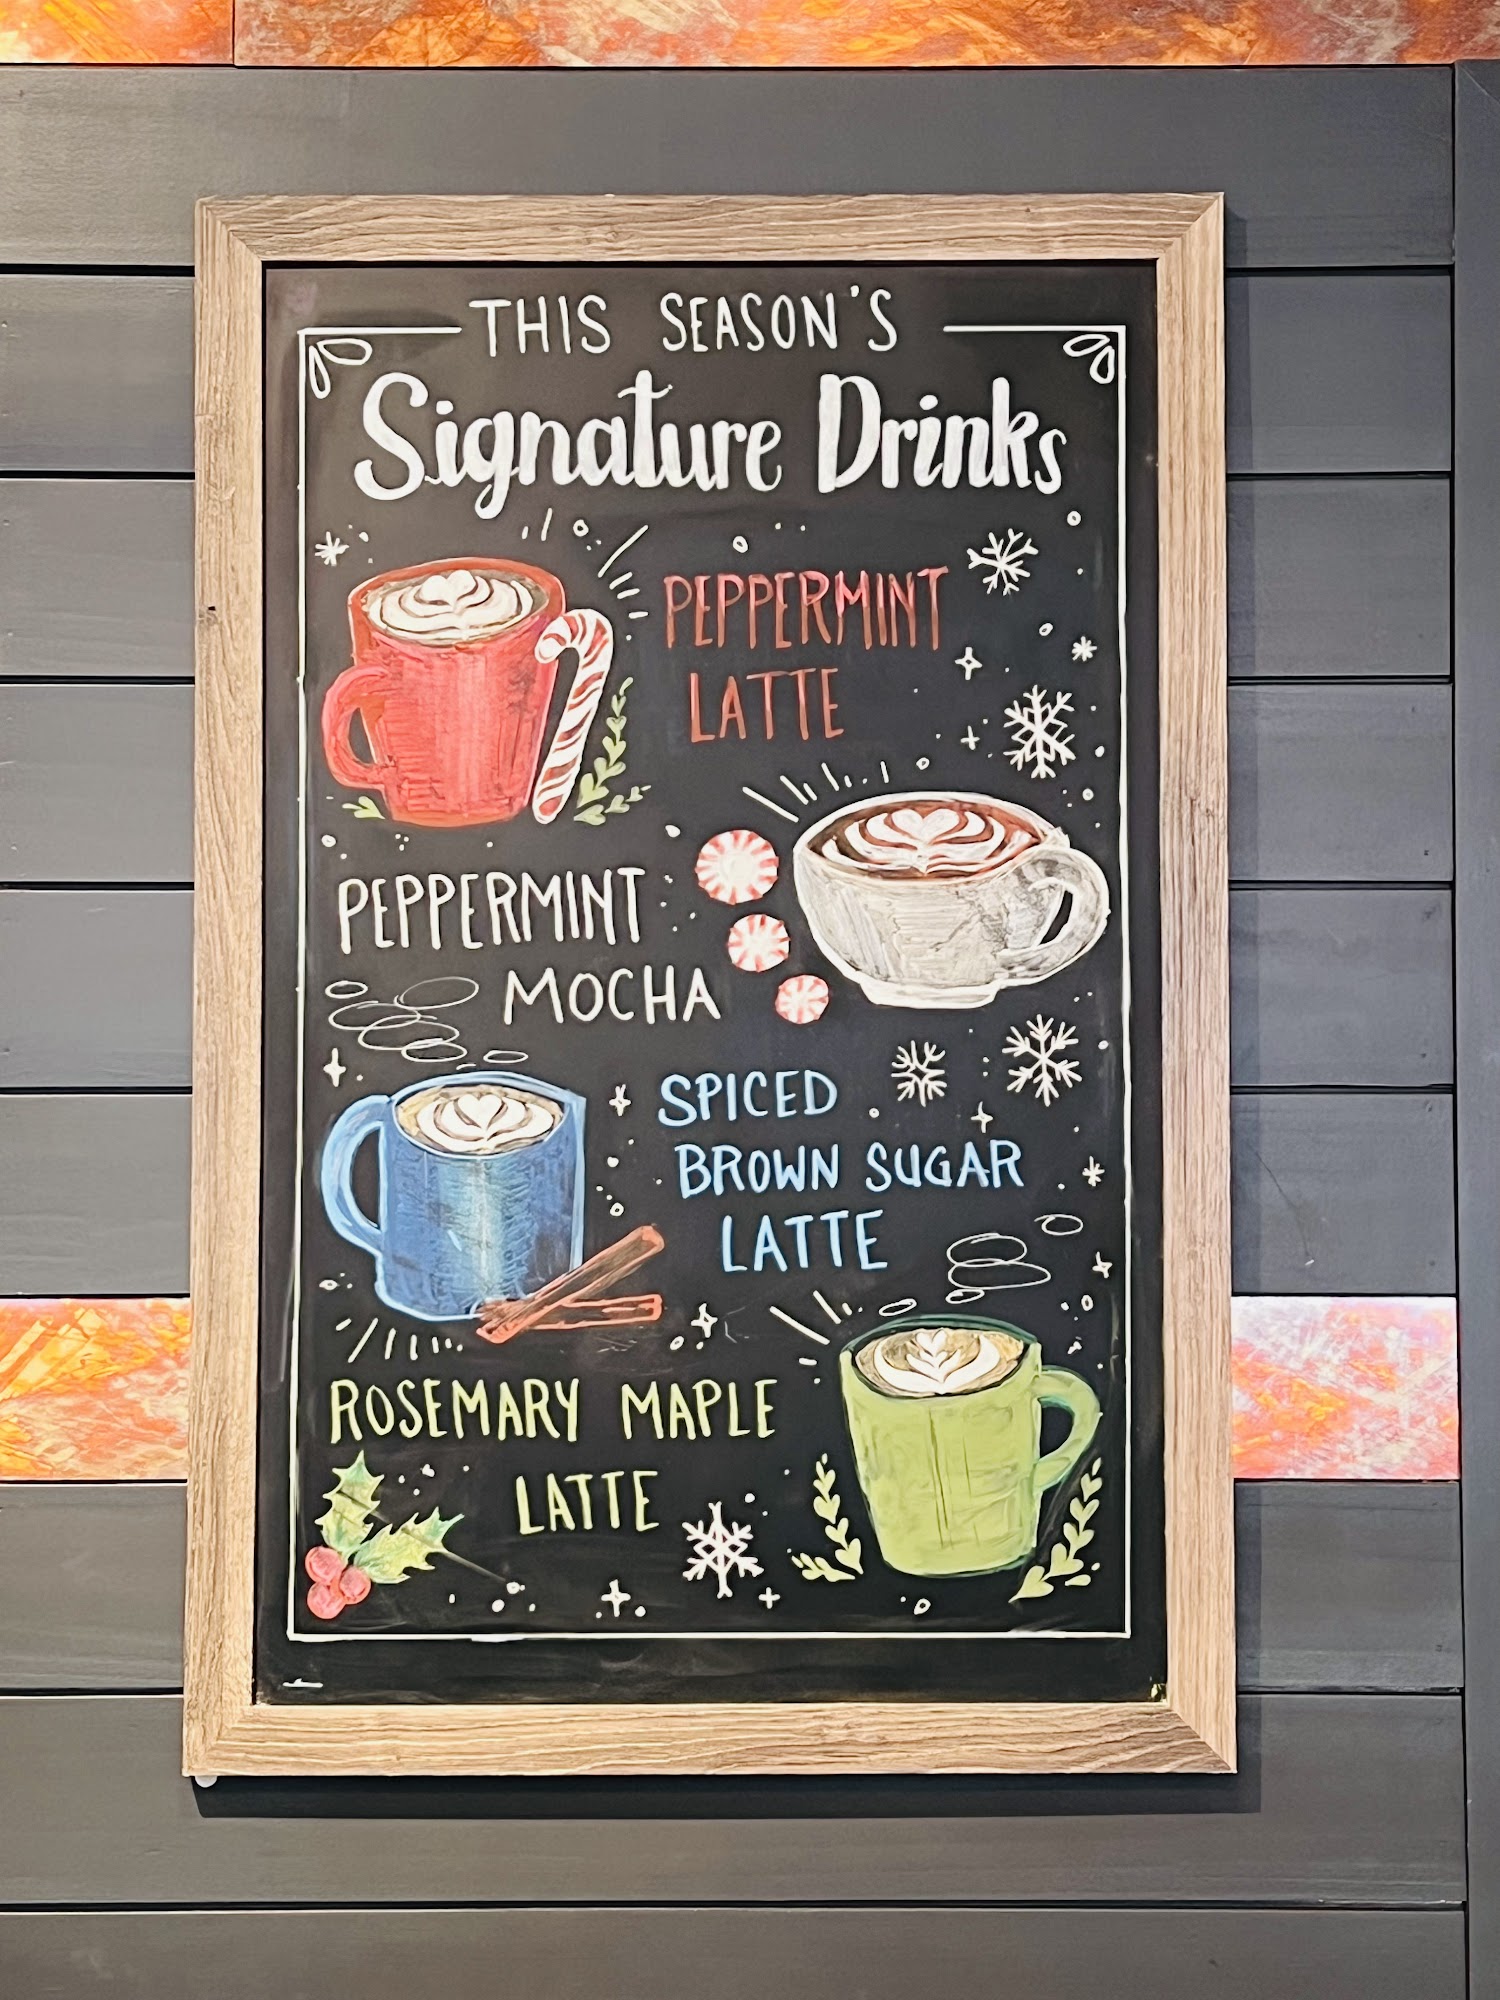 THIS SEASON'S
Signature Drinks
PEPPERMINT
LATTE
PEPPERMINT
MOCHA
SPICED
BROWN SUGAR
LATTE
ROSEMARY MAPLE
LATTE